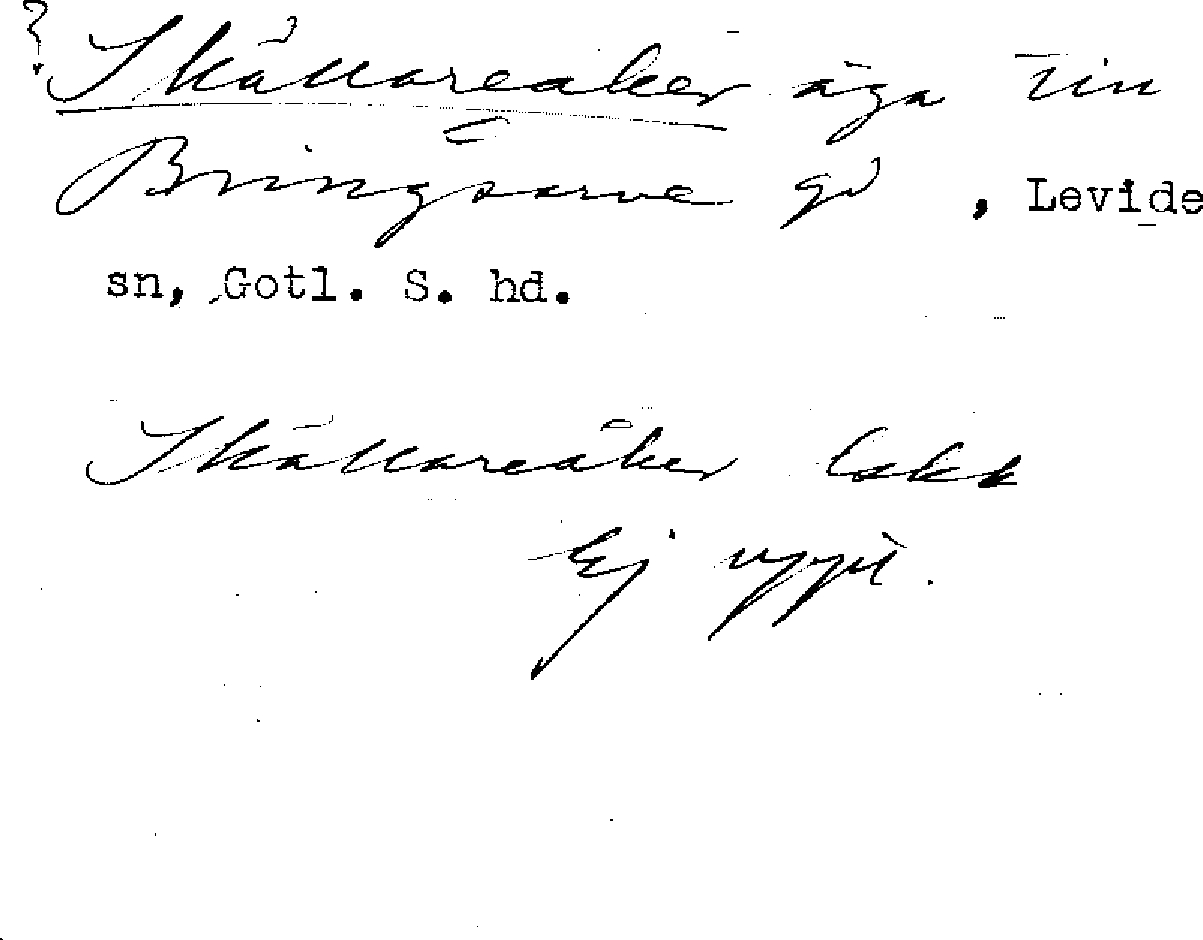 ? Skällareåker äga till
Bringsarve gd, Levide
sn, Gotl. S. hd.
Skällareåker Lskk
Ej uppt.